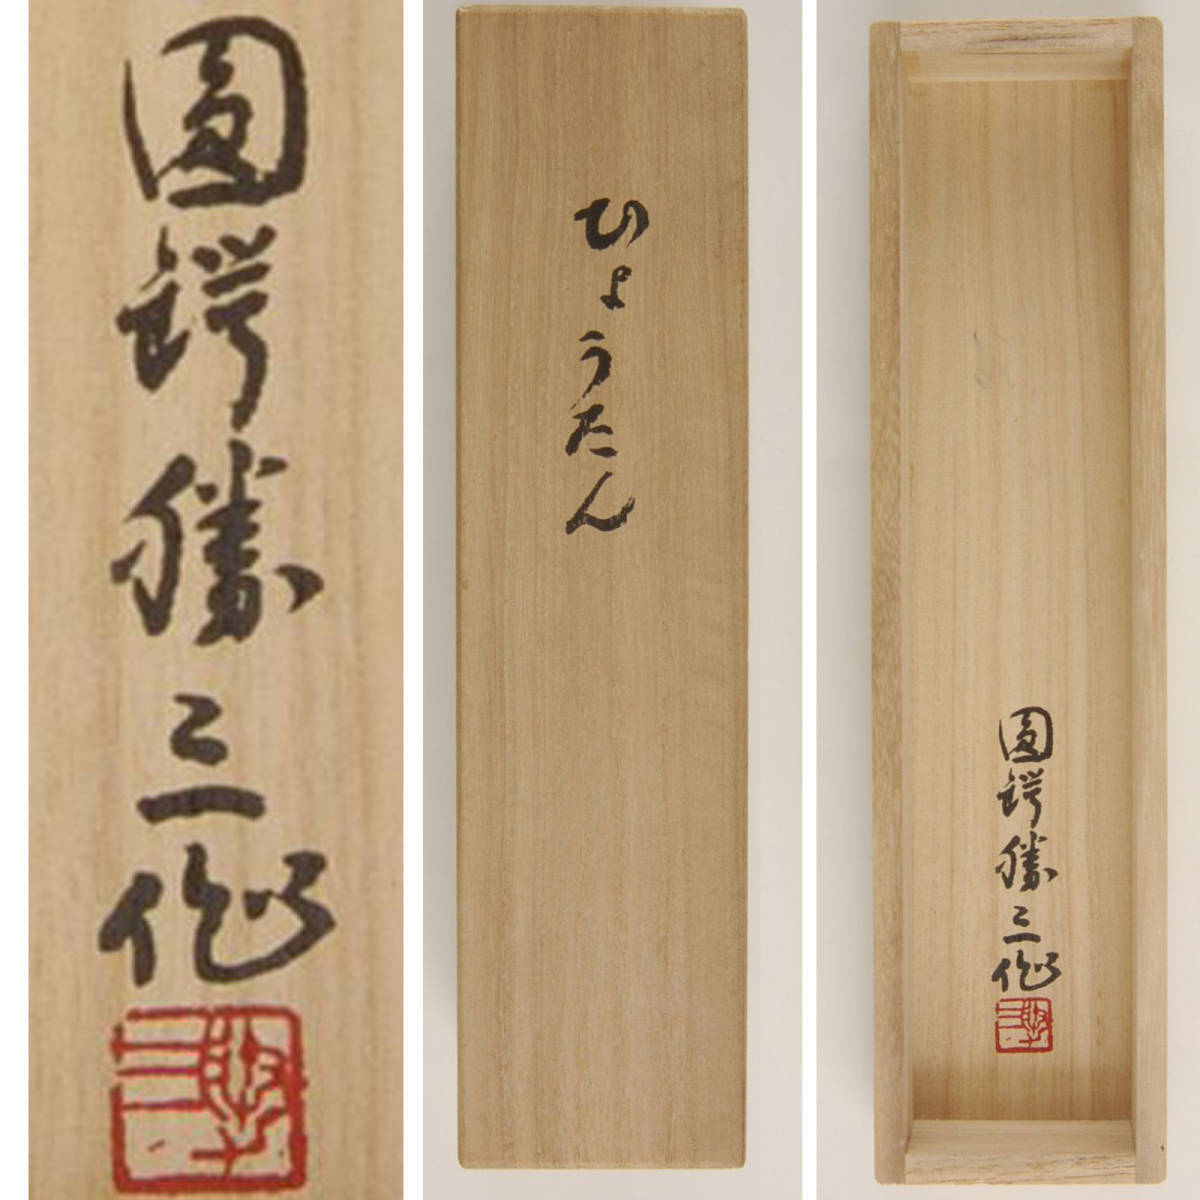 圓鍔勝三作
ひょうたん
圓鍔勝三作